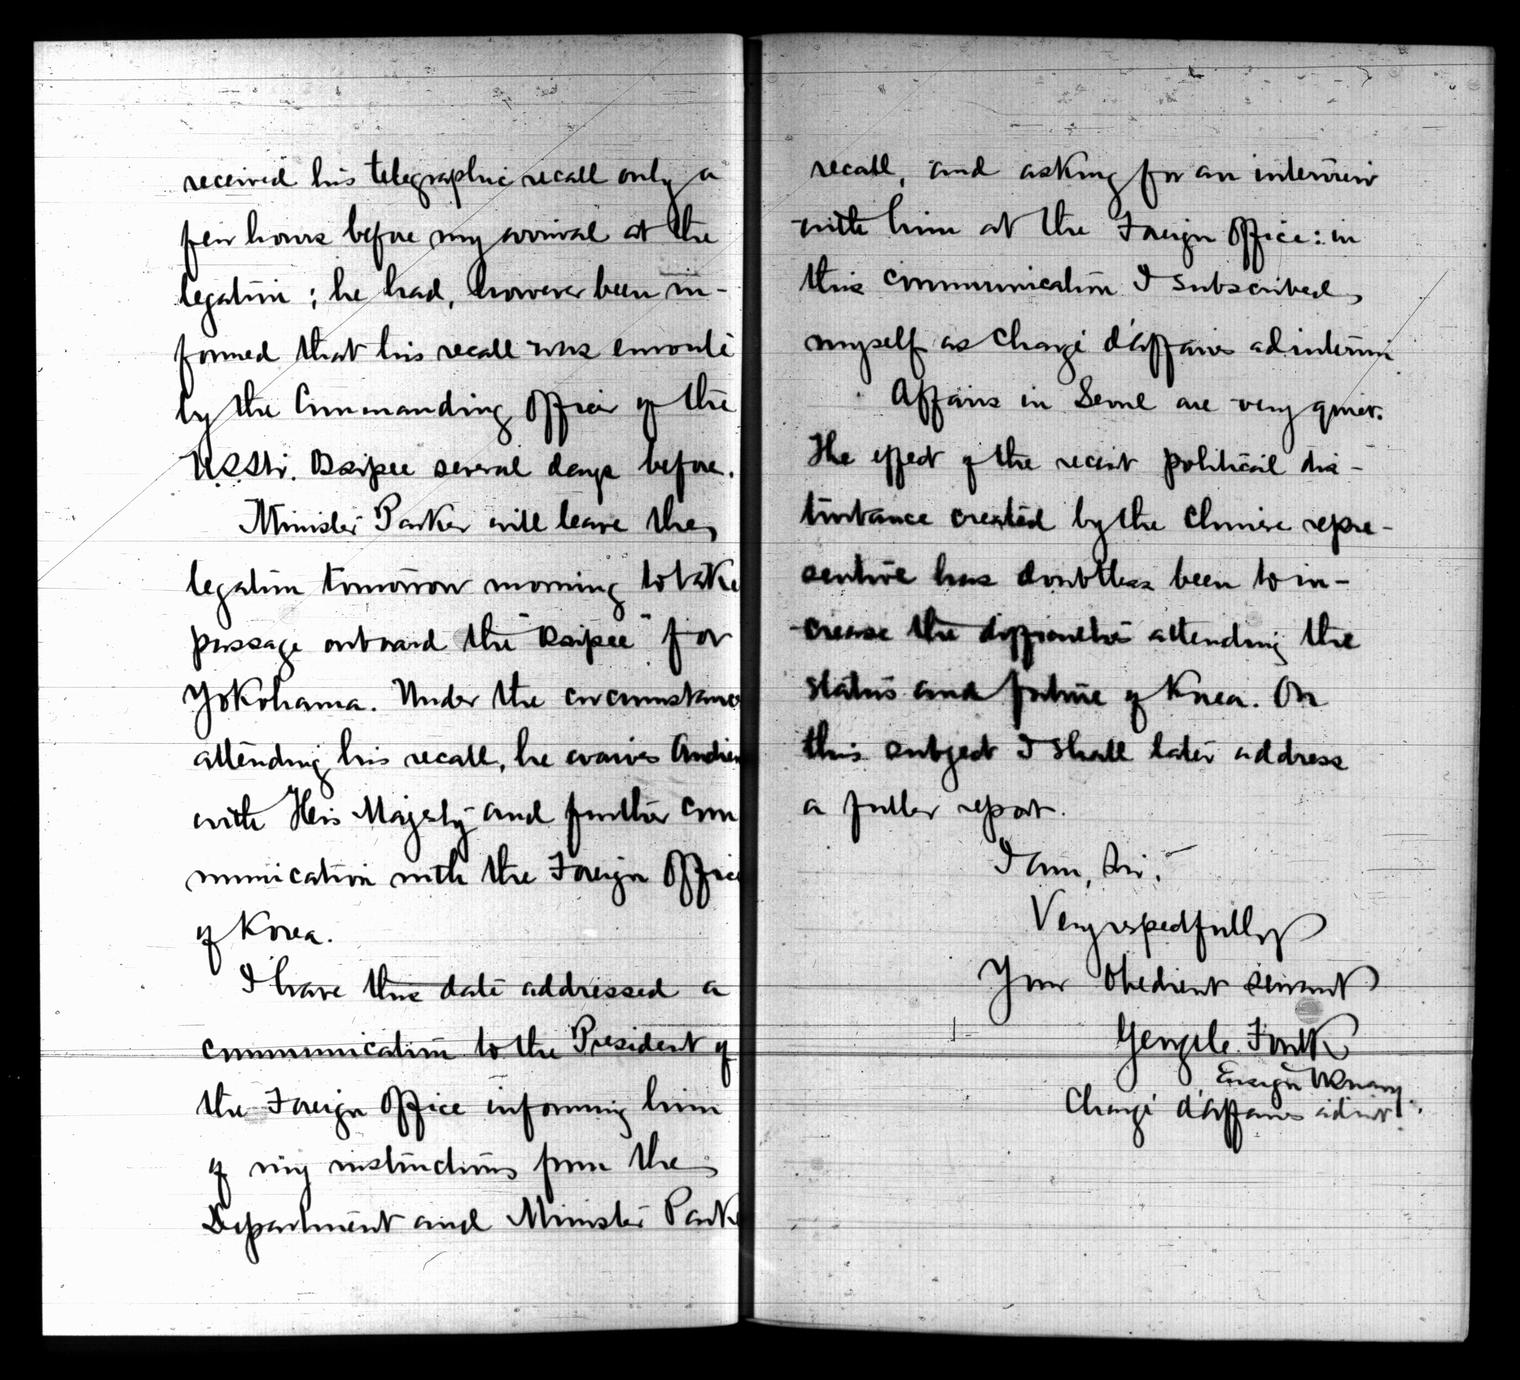 received his telegraphic recall only a
few hours before my arrival at the
legation; he had, however been in-
formed that his recall was enroute
by the Commanding Officer of the
U.S.Str. Ossipee several days before.
Minister Parker will leave the
legation tomorrow morning to take
passage onboard the "Ossipee" for
Yokohama. Under the circumstances
attending his recall, he waives Audien
with His Majesty and further com
munication with the Foreign Office
of Korea.
I have this date addressed a
communication to the President of
the Foreign Office informing him
of my instructions from the
Department and Minister Parke
recall, and asking for an interview
with him at the Foreign Office: in
this communication I subscribed
myself as Chargé d'affaires ad interim
Affairs in Seoul are very quiet.
The effect of the recent political dis-
turbance created by the Chinese repre-
sentive has doubtless been to in-
crease the difficulties attending the
status and future of Korea. On
this subject I shall later address
a fuller report.
I am, Sir,
Very respectfully
Your Obedient servant
George C. Foulk
Ensign U.S. Navy.
Chargé d'affaires ad int.